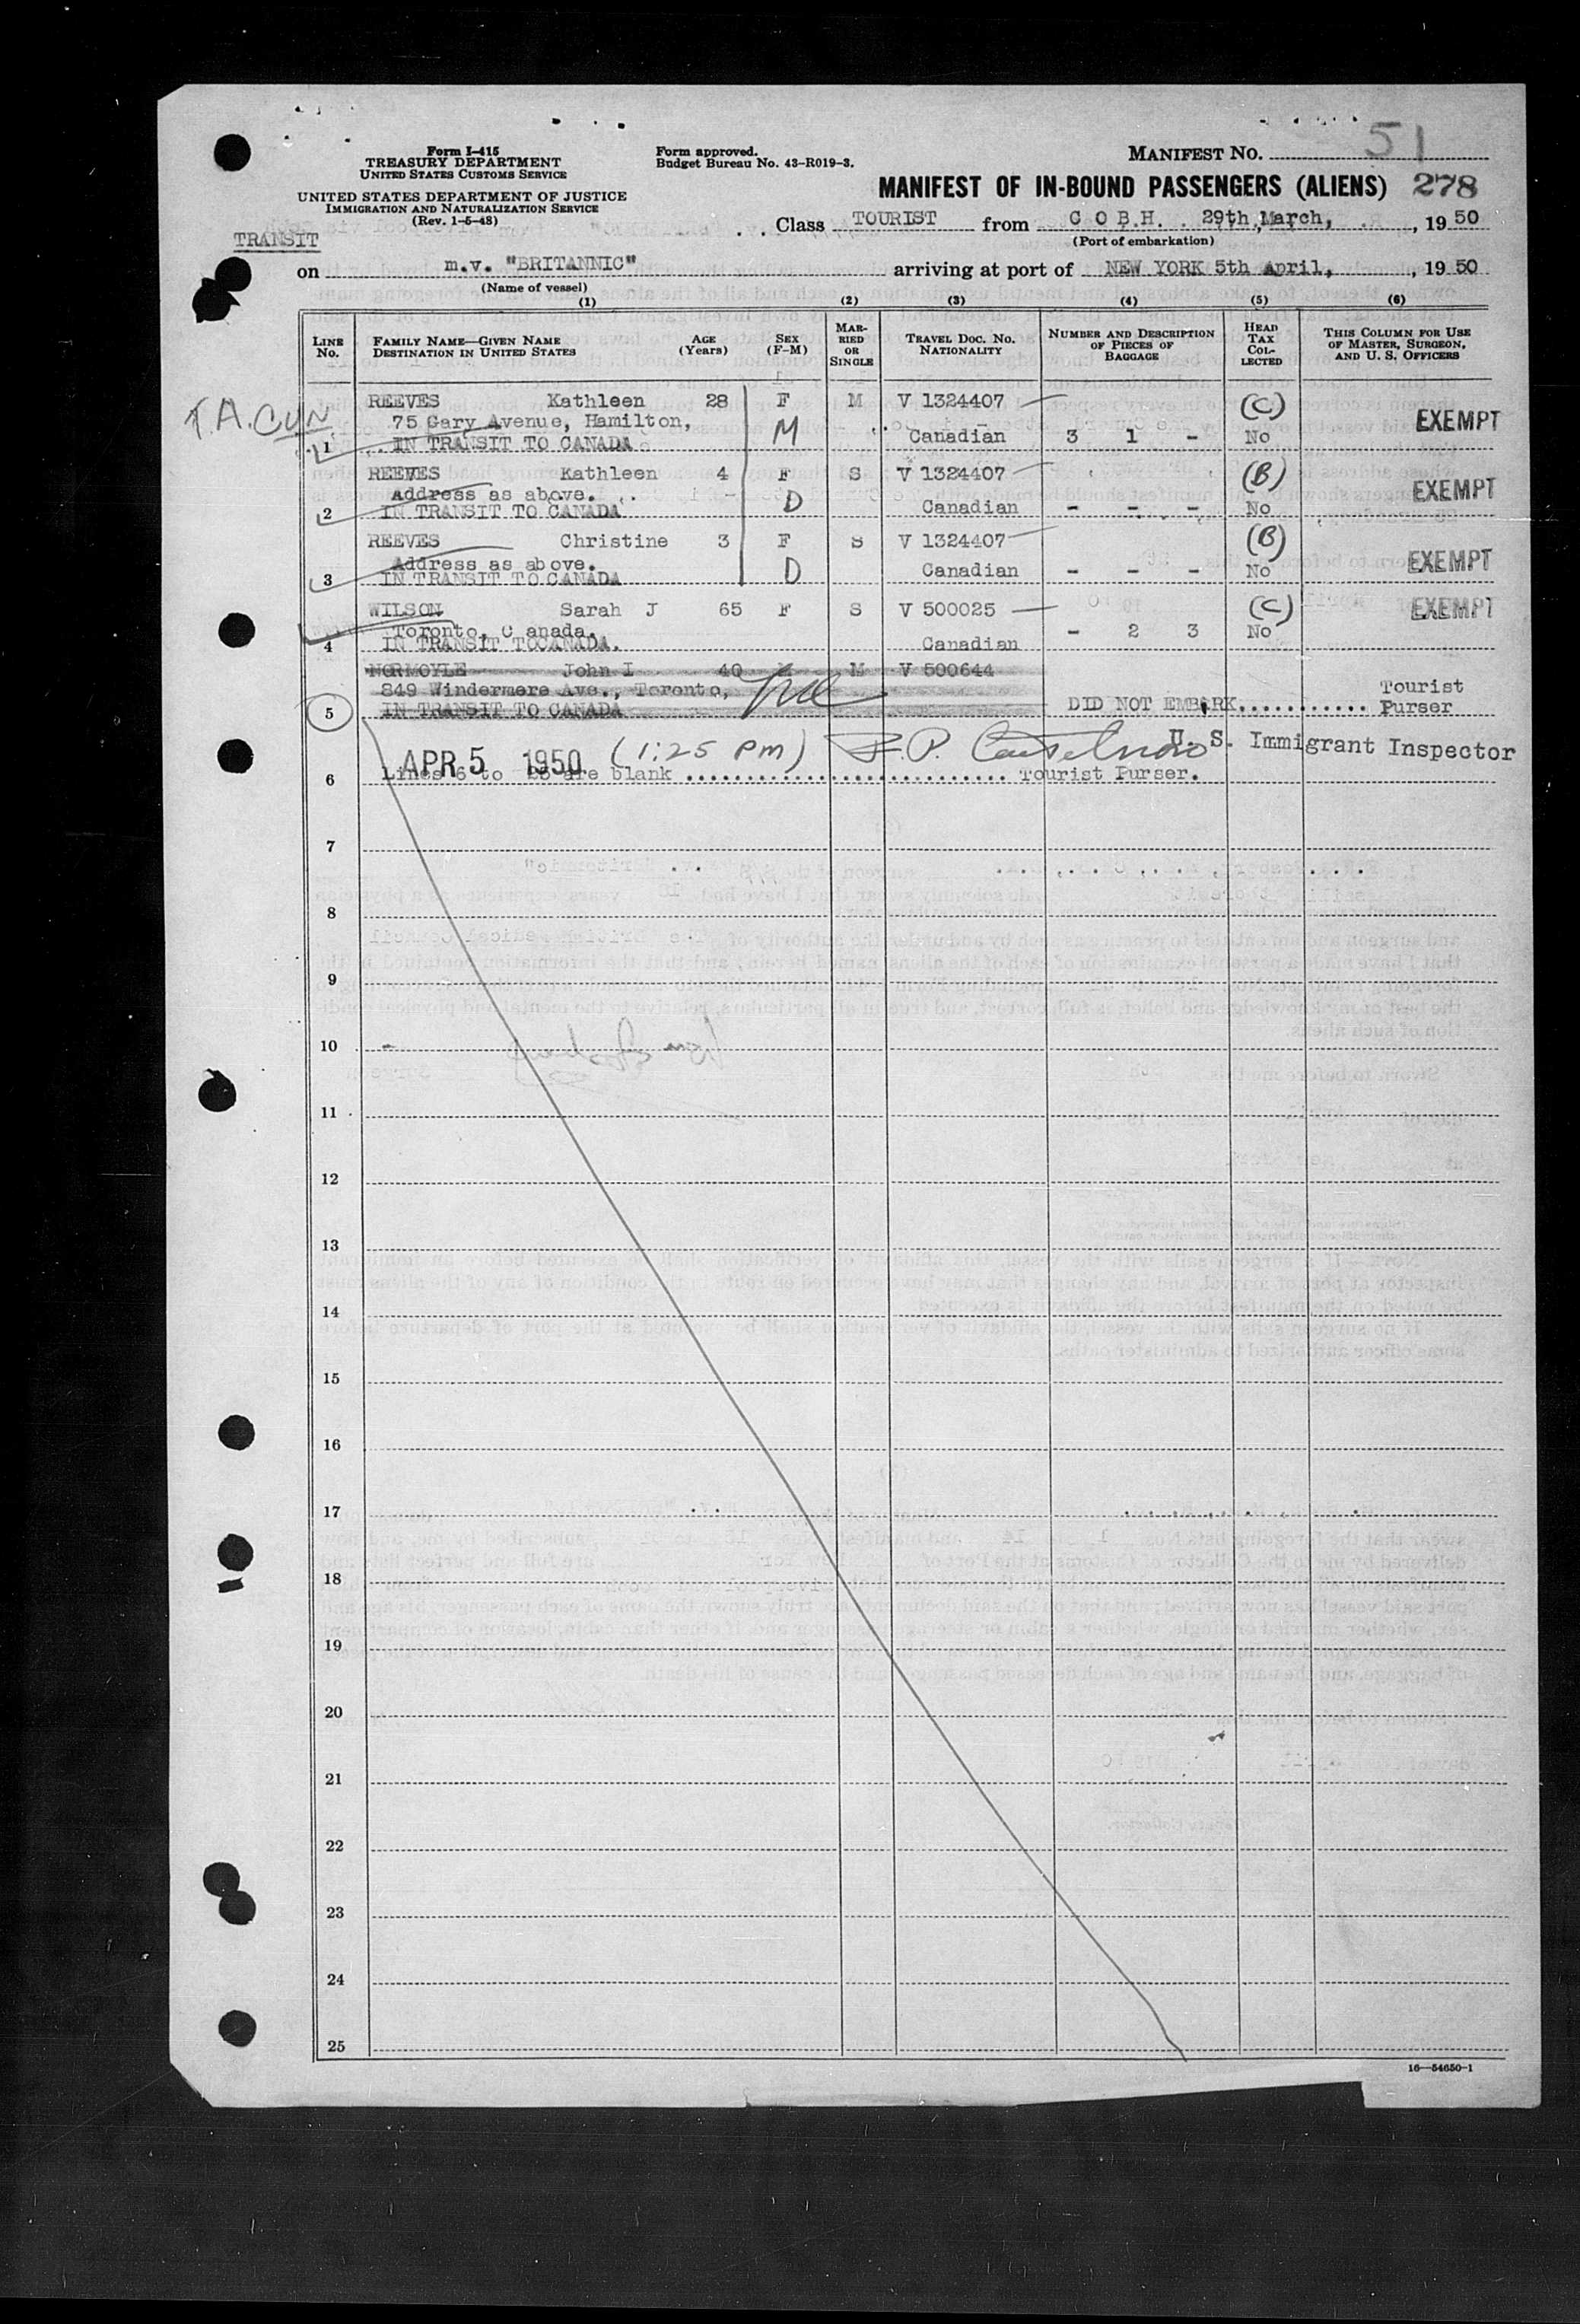 Form I-415
TREASURY DEPARTMENT
UNITED STATES CUSTOMS SERVICE
UNITED STATES DEPARTMENT OF JUSTICE
IMMIGRATION AND NATURALIZATION SERVICE
(Rev. 1-5-48)
Form approved.
Budget Bureau No. 43-R019-3.
MANIFEST NO. 51
MANIFEST OF IN-BOUND PASSENGERS (ALIENS) 278
TRANSIT
Class TOURIST from C O B H. 29th March, , 19 50
(Port of embarkation)
on m.v. "BRITANNIC" arriving at port of NEW YORK 5th April, , 19 50
(Name of vessel)
(1) (2) (3) (4) (5) (6)
LINE NO.
FAMILY NAME—GIVEN NAME
DESTINATION IN UNITED STATES
AGE (Years)
SEX (F-M)
MARRIED OR SINGLE
TRAVEL DOC. NO. NATIONALITY
NUMBER AND DESCRIPTION OF PIECES OF BAGGAGE
HEAD TAX COLLECTED
THIS COLUMN FOR USE OF MASTER, SURGEON, AND U. S. OFFICERS
T.A. CYN
REEVES Kathleen 28 F M V 1324407 (C) EXEMPT
75 Gary Avenue, Hamilton, M
1 IN TRANSIT TO CANADA Canadian 3 1 - No
REEVES Kathleen 4 F S V 1324407 (B) EXEMPT
Address as above. D
2 IN TRANSIT TO CANADA Canadian - - - No
REEVES Christine 3 F S V 1324407 (B) EXEMPT
Address as above. D
3 IN TRANSIT TO CANADA Canadian - - - No
WILSON Sarah J 65 F S V 500025 (C) EXEMPT
Toronto, C anada. - 2 3 No
4 IN TRANSIT TOCANADA. Canadian
NORMOYLE John I 40 M V 500644
849 Windermere Ave., Toronto,
5 IN TRANSIT TO CANADA DID NOT EMBARK........... Tourist Purser
APR 5 1950 (1:25 PM) U. S. Immigrant Inspector
6 Lines 6 to 25 are blank ............................ Tourist Purser.
7
8
9
10
11
12
13
14
15
16
17
18
19
20
21
22
23
24
25
16—54650-1